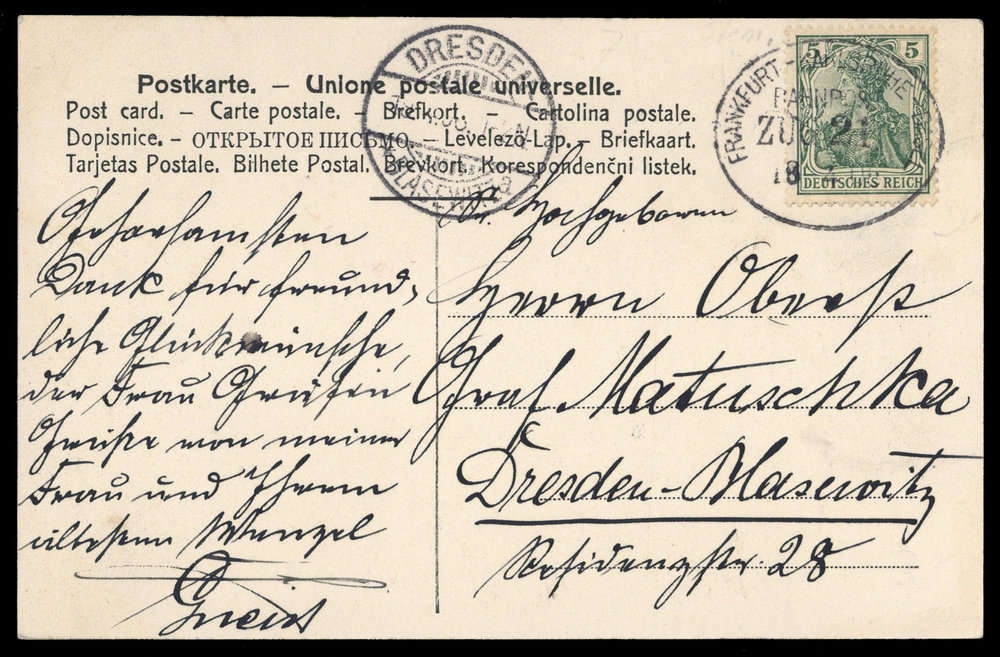 Postkarte. – Unione postale universelle.
Post card. – Carte postale. – Brefkort. – Cartolina postale.
Dopisnice. – ОТКРЫТОЕ ПИСЬМО. – Levelező-Lap. – Briefkaart.
Tarjetas Postale. Bilhete Postal. Brevkort. Korespondenční listek.
DRESDEN
BLASEWITZ
5 5
DEUTSCHES REICH
FRANKFURT - KARLSRUHE
BAHNPOST
ZUG 21
18
Sr. Hochgeboren
Herrn Oberst
Graf Matuschka
Dresden-Blasewitz
Residenzstr. 28
Gehorsamsten
Dank für freund-
liche Glückwünsche,
der Frau Gräfin
Grüße von meiner
Frau und Ihrem
Wenzel